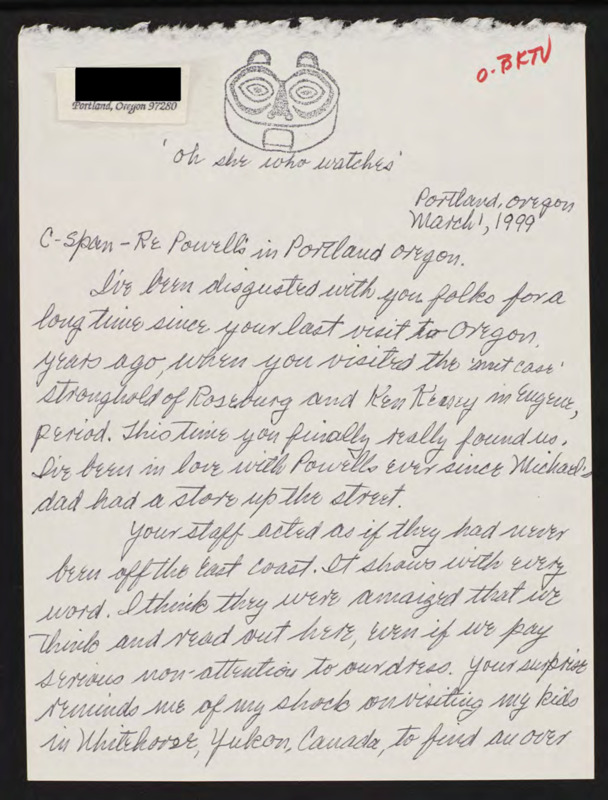 o. BKTV
Portland, Oregon 97280
'oh she who watches'
Portland, Oregon
March 1, 1999
C-Span - Re Powell's in Portland Oregon.
I've been disgusted with you folks for a
long time since your last visit to Oregon,
years ago, when you visited the 'nut case'
stronghold of Roseburg and Ken Kesey in Eugene,
period. This time you finally really found us.
I've been in love with Powells ever since Michael's
dad had a store up the street.
Your staff acted as if they had never
been off the East Coast. It shows with every
word. I think they were amaized that we
think and read out here, even if we pay
serious non-attention to our dress. Your surprise
reminds me of my shock on visiting my kids
in Whitehorse, Yukon, Canada, to find an over